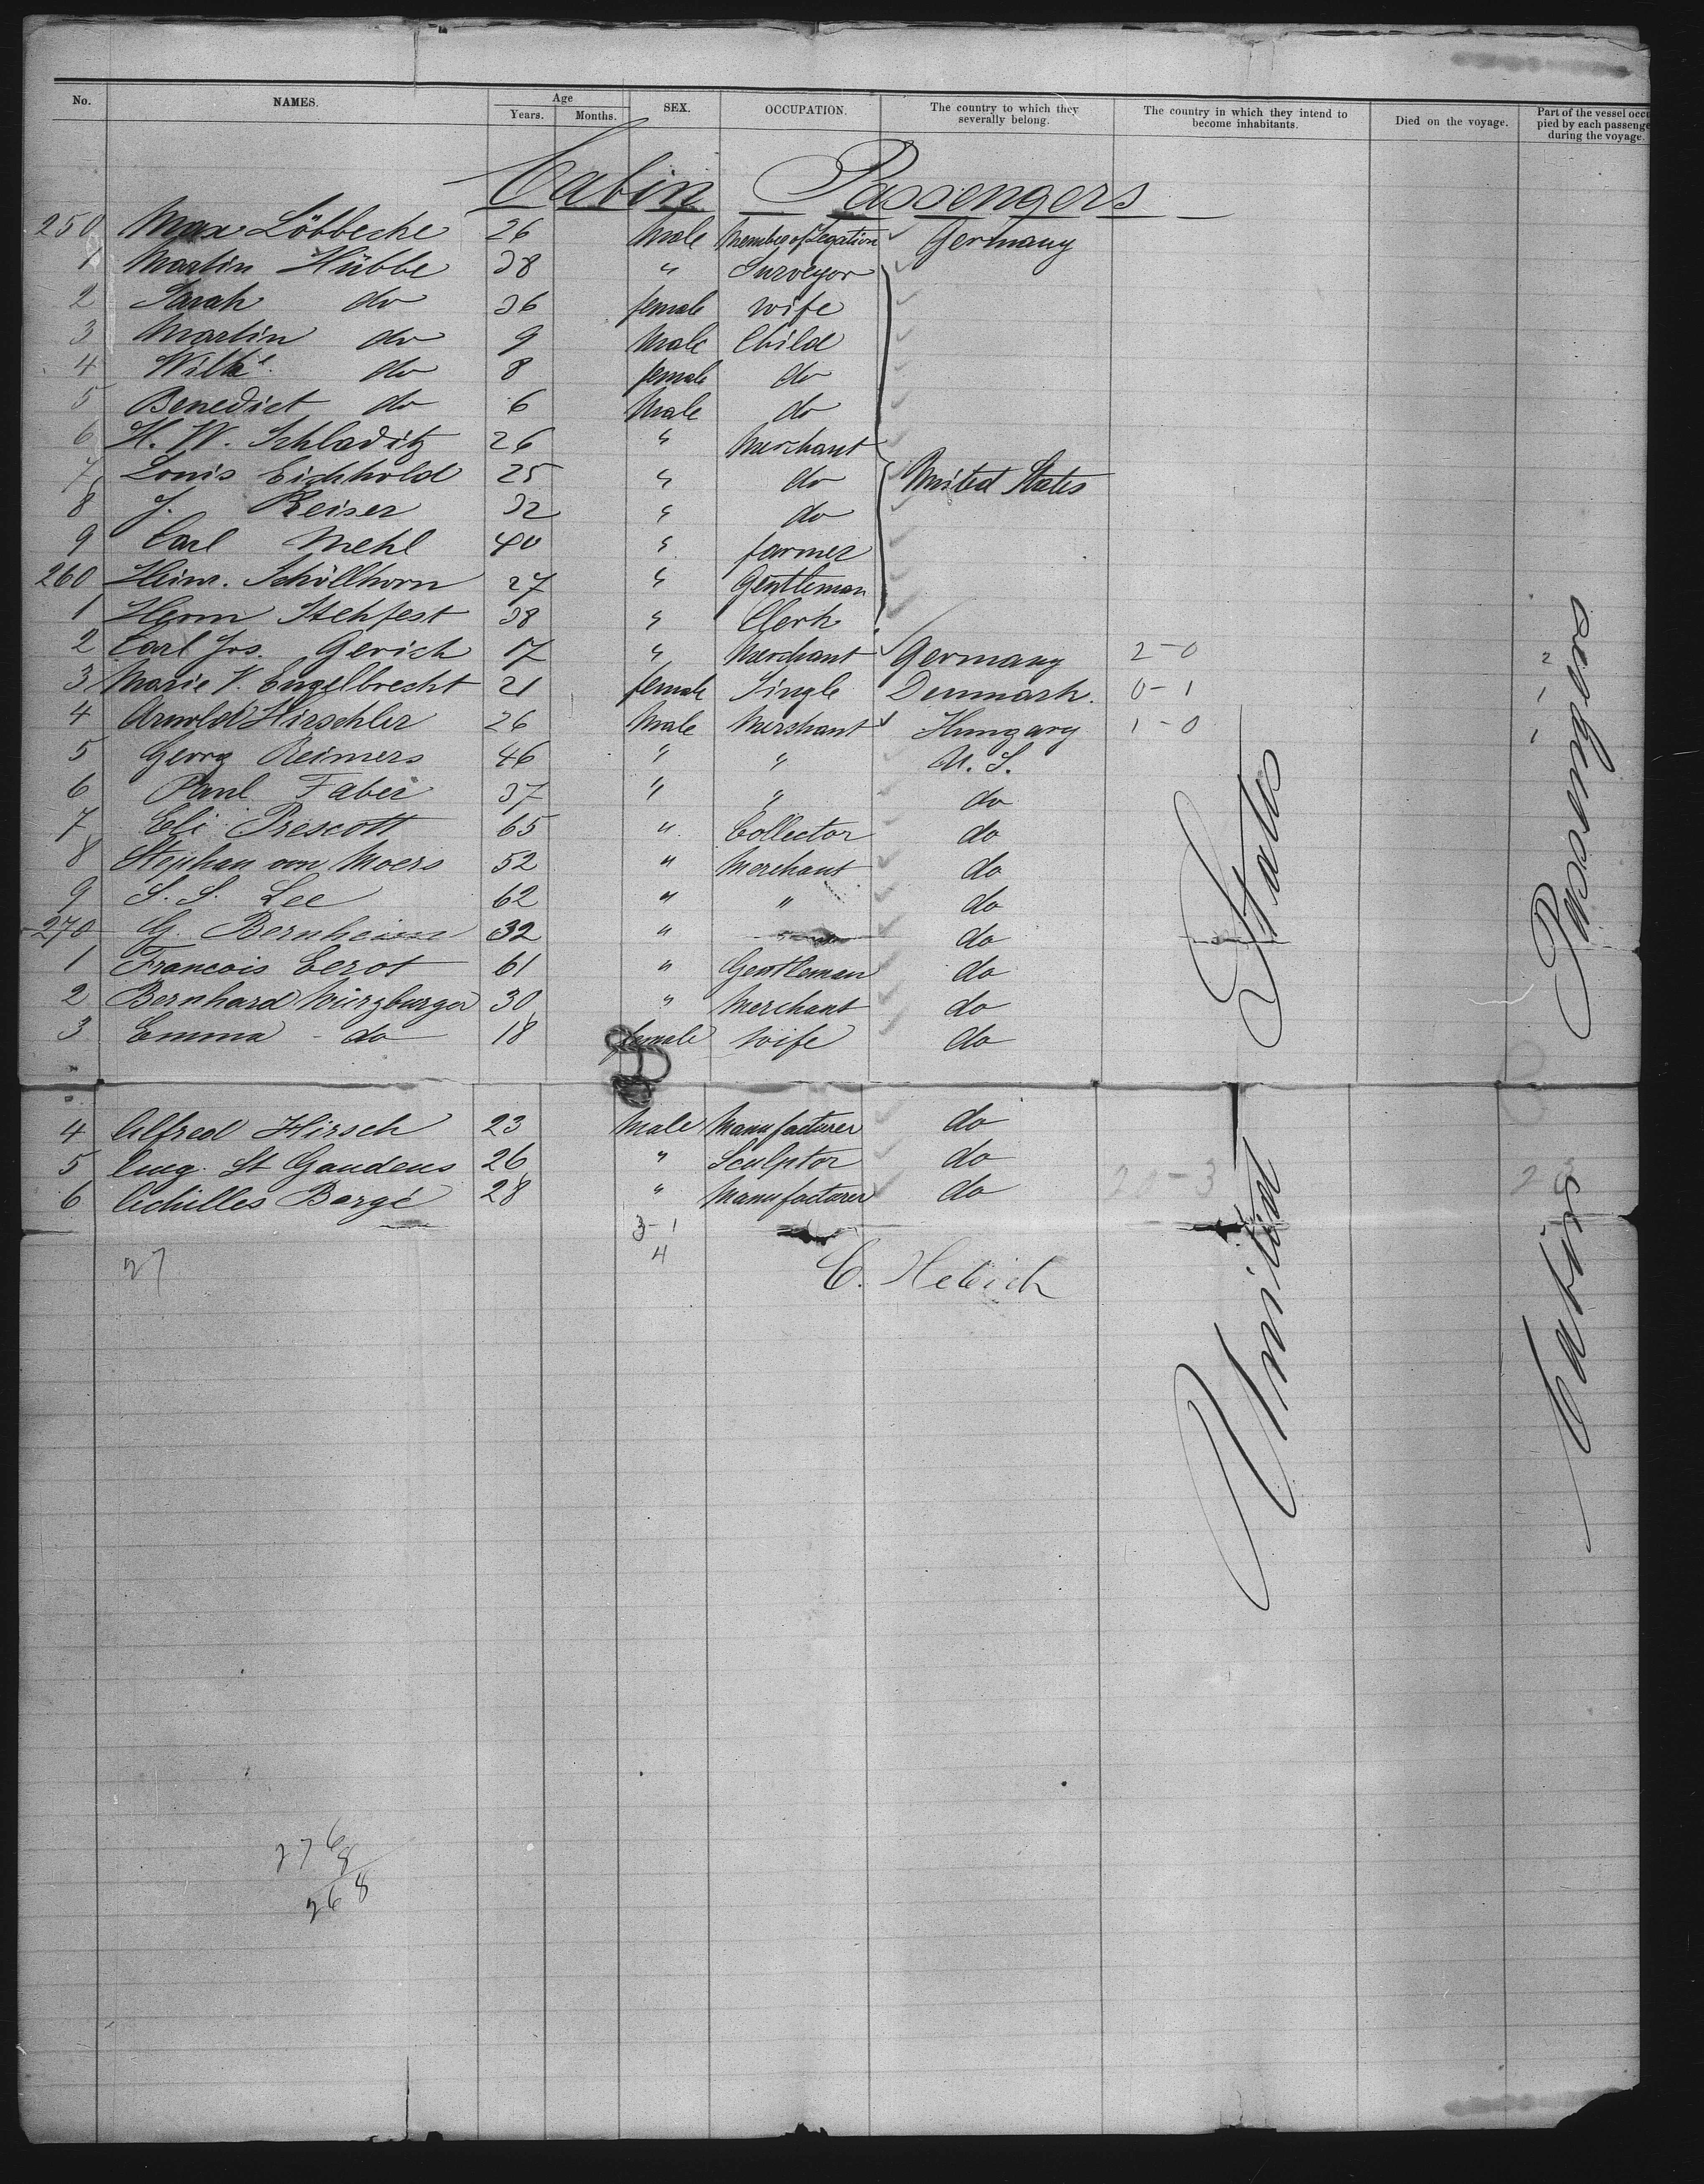 No. NAMES. Age Years. Months. SEX. OCCUPATION. The country to which they severally belong. The country in which they intend to become inhabitants. Died on the voyage. Part of the vessel occu pied by each passenge during the voyage.
Cabin Passengers
250 Max Löbbecke 26 Male Member of Legation Germany
1 Martin Hübbe 38 " Surveyor
2 Sarah do 36 female wife
3 Martin do 9 Male Child
4 do 8 female do
5 Benedict do 6 Male do
6 H. W. Schladitz 26 " Merchant
7 Louis Eichhold 25 " do United States
8 J. Reiser 32 " do
9 Carl Mehl 40 " farmer
260 Heinr. Schöllhorn 27 " Gentleman
1 Herm Stehfest 38 " Clerk
2 Carl Jos. Gerich 17 " Merchant Germany 2-0 2
3 Marie V. Engelbrecht 21 female Single Denmark. 0-1 1
4 Arnold Hirschler 26 Male Merchant Hungary 1-0 1
5 Georg Reimers 46 " " U. S.
6 Paul Faber 37 " " do
7 Eli Prescott 65 " Collector do
8 Stephan van Moers 52 " Merchant do
9 S. S. Lee 62 " " do
270 G. Bernheim 32 " do
1 Francois Cerot 61 " Gentleman do
2 Bernhard Würzburger 30 " Merchant do
3 Emma - do 18 female wife do
4 Alfred Hirsch 23 Male Manufacturer do
5 Aug. St Gaudens 26 " Sculptor do
6 Achilles Bargé 28 " Manufacturer do
3-1
4
27
C. Hebich
United States
Cabin Passengers
276
8
268